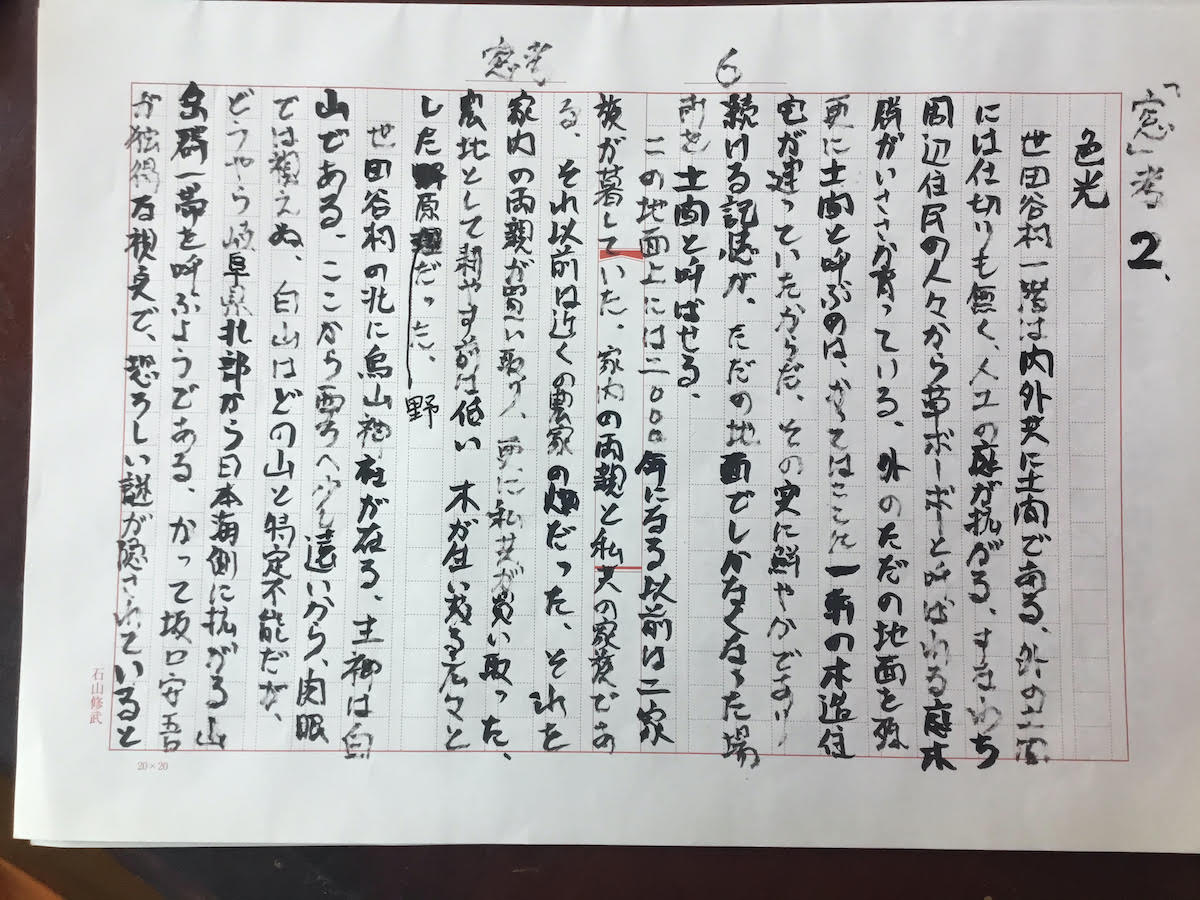 「窓」考 2、
6
窓考
色光
世田谷村一階は内外共に土間である。外の土間
には仕切りも無く、人工の庭が拡がる。すなわち
周辺住民の人々から草ボーボーと呼ばれる庭木
群がいささか育っている。外のただの地面を
更に土間と呼ぶのは、かつてはここに一軒の木造住
宅が建っていたからだ。その実に鮮やかであり
続ける記憶が、ただの地面でしかなくなった場
所を土間と呼ばせる。
この地面上には二〇〇〇年になる以前は二家
族が暮していた。家内の両親と私共の家族であ
る。それ以前は近くの農家の畑だった。それを
家内の両親が買い取り、更に私共が買い取った。
農地として耕やす前は低い 木が生い茂る広々と
した野原だった。
野
世田谷村の北に烏山神社が在る。主神は白
山である。ここから西方へ少し遠いから、肉眼
では視えぬ。白山はどの山と特定不能だが、
どうやら岐阜県北部から日本海側に拡がる山
岳群一帯を呼ぶようである。かって坂口安吾
が独得な視点で、恐ろしい謎が隠されていると
石山修武
20×20